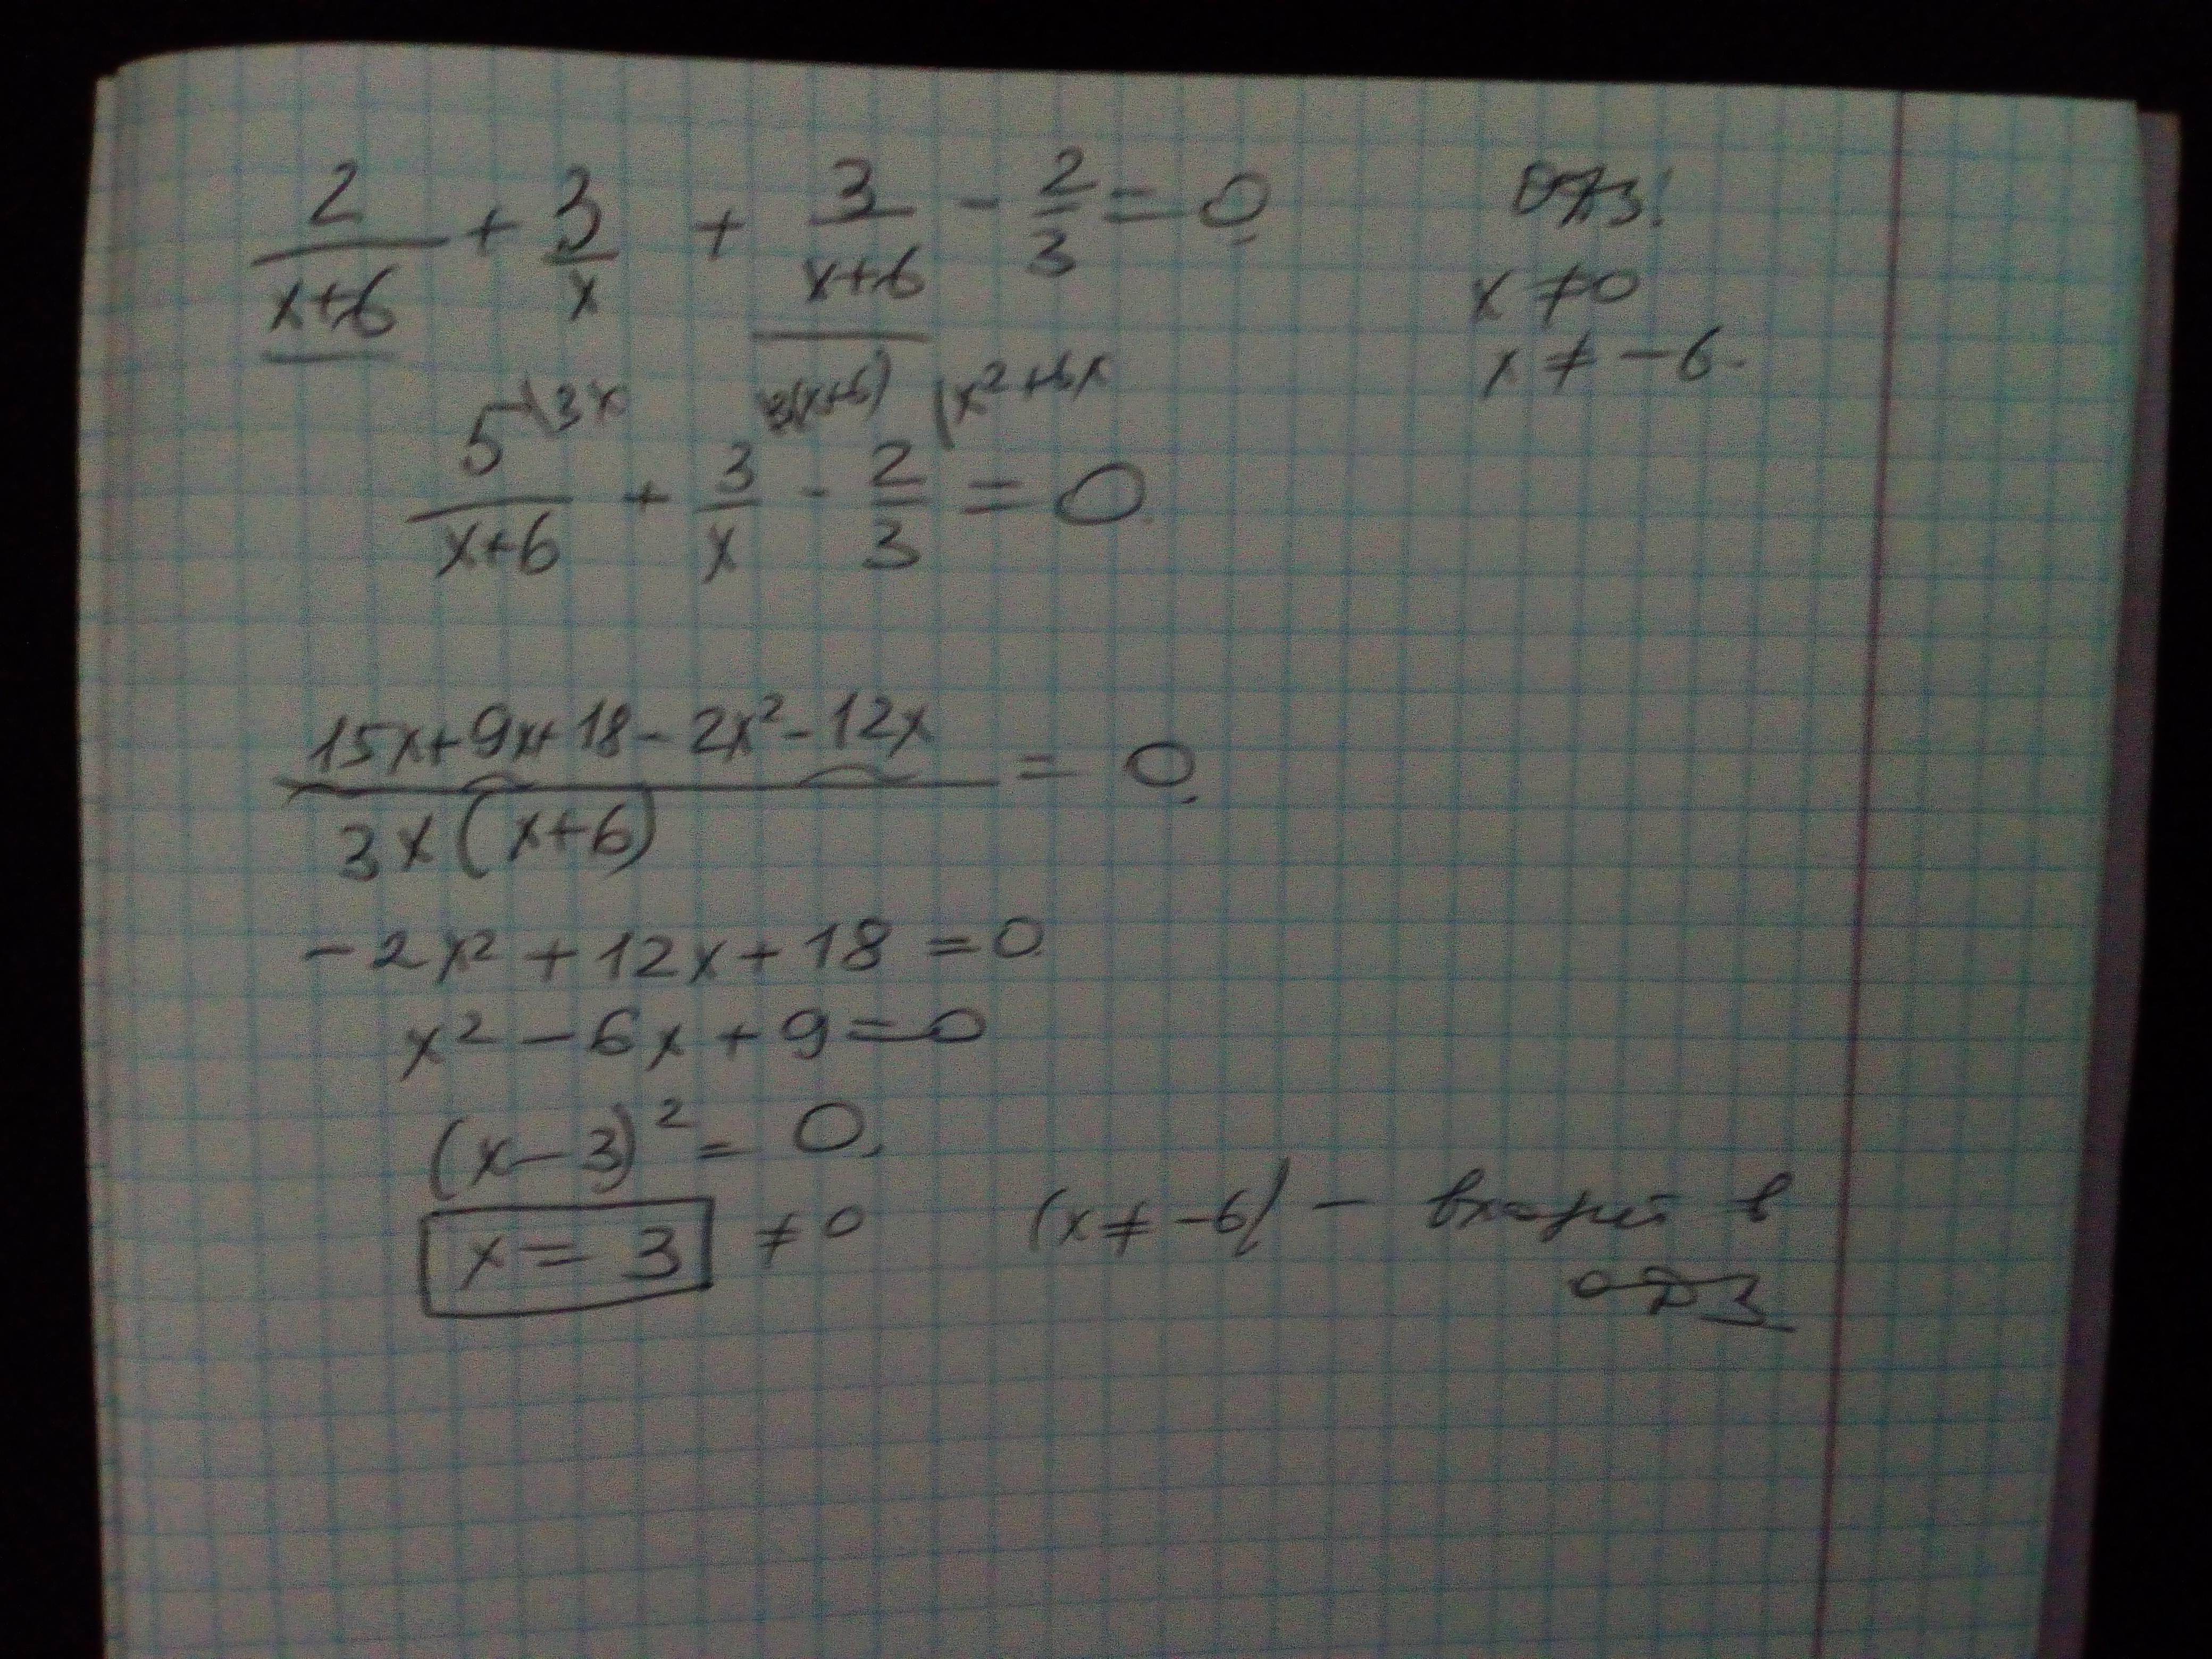 2/(x+6) + 3/x + 3/(x+6) - 2/3 = 0 ОДЗ:
x ≠ 0
x ≠ -6.
5\3x/(x+6) + 3\3(x+6)/x - 2\x²+6x/3 = 0.
(15x+9x+18-2x²-12x)/(3x(x+6)) = 0.
-2x² + 12x + 18 = 0.
x² - 6x + 9 = 0
(x-3)² = 0.
x = 3 ≠ 0 (x ≠ -6) - входит в
ОДЗ